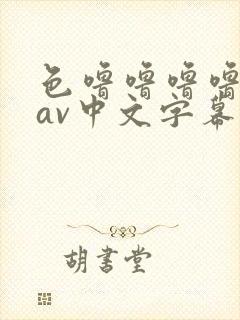 色噜噜噜噜
av中文字幕
胡書堂